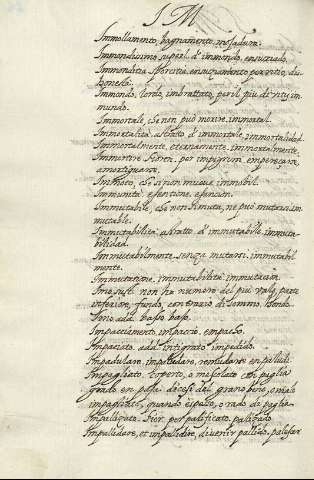 I M
Immollamento, bagnamento, mojadura.
Immondissimo, superl. d'immondo, ensuziado.
Immondizia, sporcizia, ensuziamento, porqueria, dis
honestà.
Immondo, lordo, imbrattato, per il più di
mundo.
Immortale, che non può morire, immortal.
Immortalità, astratto d'immortale, immortalidad.
Immortalmente, eternamente, immortalmente.
Immortire Fioren. per impigrir, emperezar,
amortiguar.
Immoto, che si non muove, immobil.
Immunità, esentione, esencion.
Immutabile, che non si muta, ne può mutarsi, im
mutable.
Immutabilità, astratto d'immutabile, immuta-
bilidad.
Immutabilmente, senza mutarsi, immutabil
mente.
Immutazione, immutabilità, immutacion.
Imo, sust. non ha numero del più, vale, parte
inferiore, fondo, contrario di sommo, hondo.
Imo, add. basso, baxo.
Impacciamento, impaccio, empacho.
Impaciato, add. intrigato, impedido.
Impadulare, impaludare,
Impagliato, coperto, o mescolato con paglia
grado, en paja, dicesi del grano bene, o mal
impagliato, quando è spesso, o rado di paglia.
Impalizato, Fior. per palificato, palizado
Impallidare, et impallidire, divenir pallido,